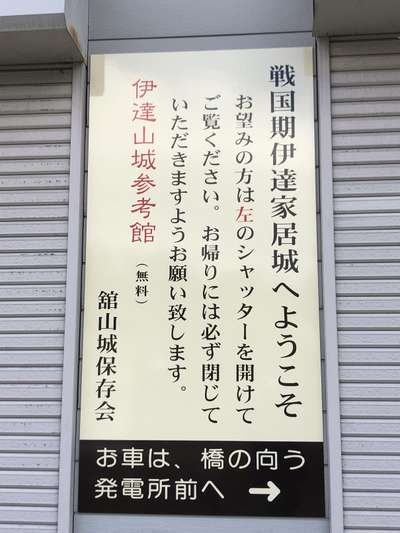 戦国期伊達家居城へようこそ
お望みの方は左のシャッターを開けて
ご覧ください。お帰りには必ず閉じて
いただきますようお願い致します。
伊達山城参考館
(無料)
舘山城保存会
お車は、橋の向う
発電所前へ →